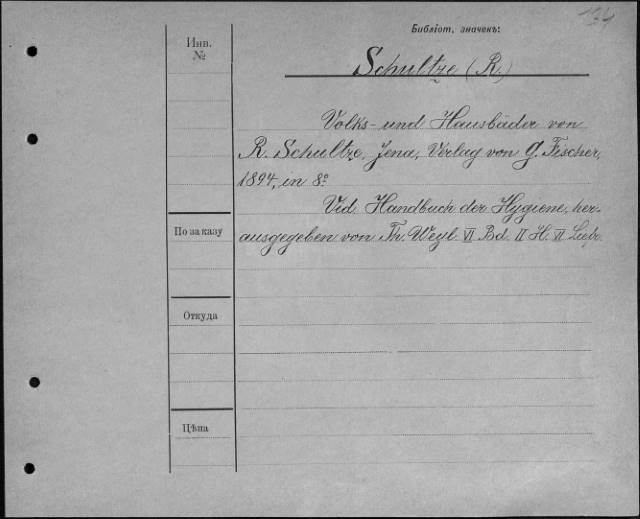 134
Библіот. значекъ:
Инв.
№
Schultze (R.)
Volks- und Hausbäder von
R. Schultze, Jena, Verlag von G. Fischer,
1894, in 8º
Vid. Handbuch der Hygiene, her-
ausgegeben von Th. Weyl VI Bd. II H. VI Liefr.
По заказу
Откуда
Цѣна